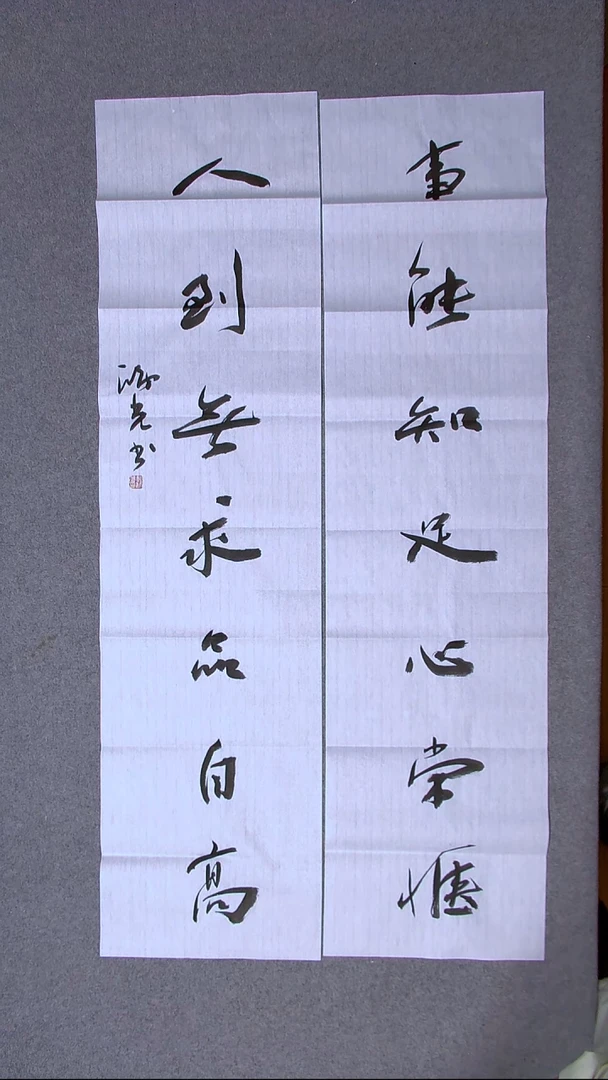 事能知足心常愜
人到無求品自高
光书